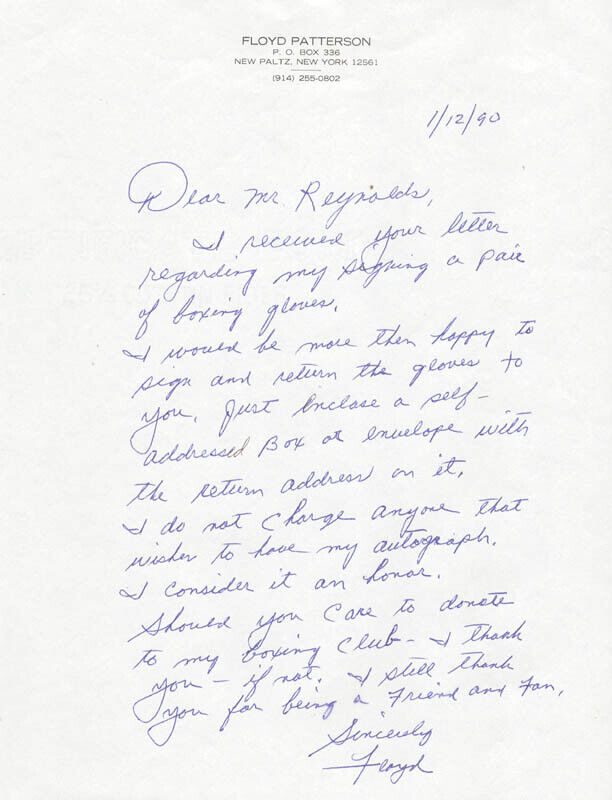 FLOYD PATTERSON
P. O. BOX 336
NEW PALTZ, NEW YORK 12561
(914) 255-0802
1/12/90
Dear Mr. Reynolds,
I received your letter
regarding my signing a pair
of boxing gloves.
I would be more then happy to
sign and return the gloves to
you. Just enclose a self-
addressed Box or envelope with
the return address on it.
I do not charge anyone that
wishes to have my autograph.
I consider it an honor.
Should you care to donate
to my boxing club - I thank
you - if not. I still thank
you for being a Friend and Fan.
Sincerely
Floyd